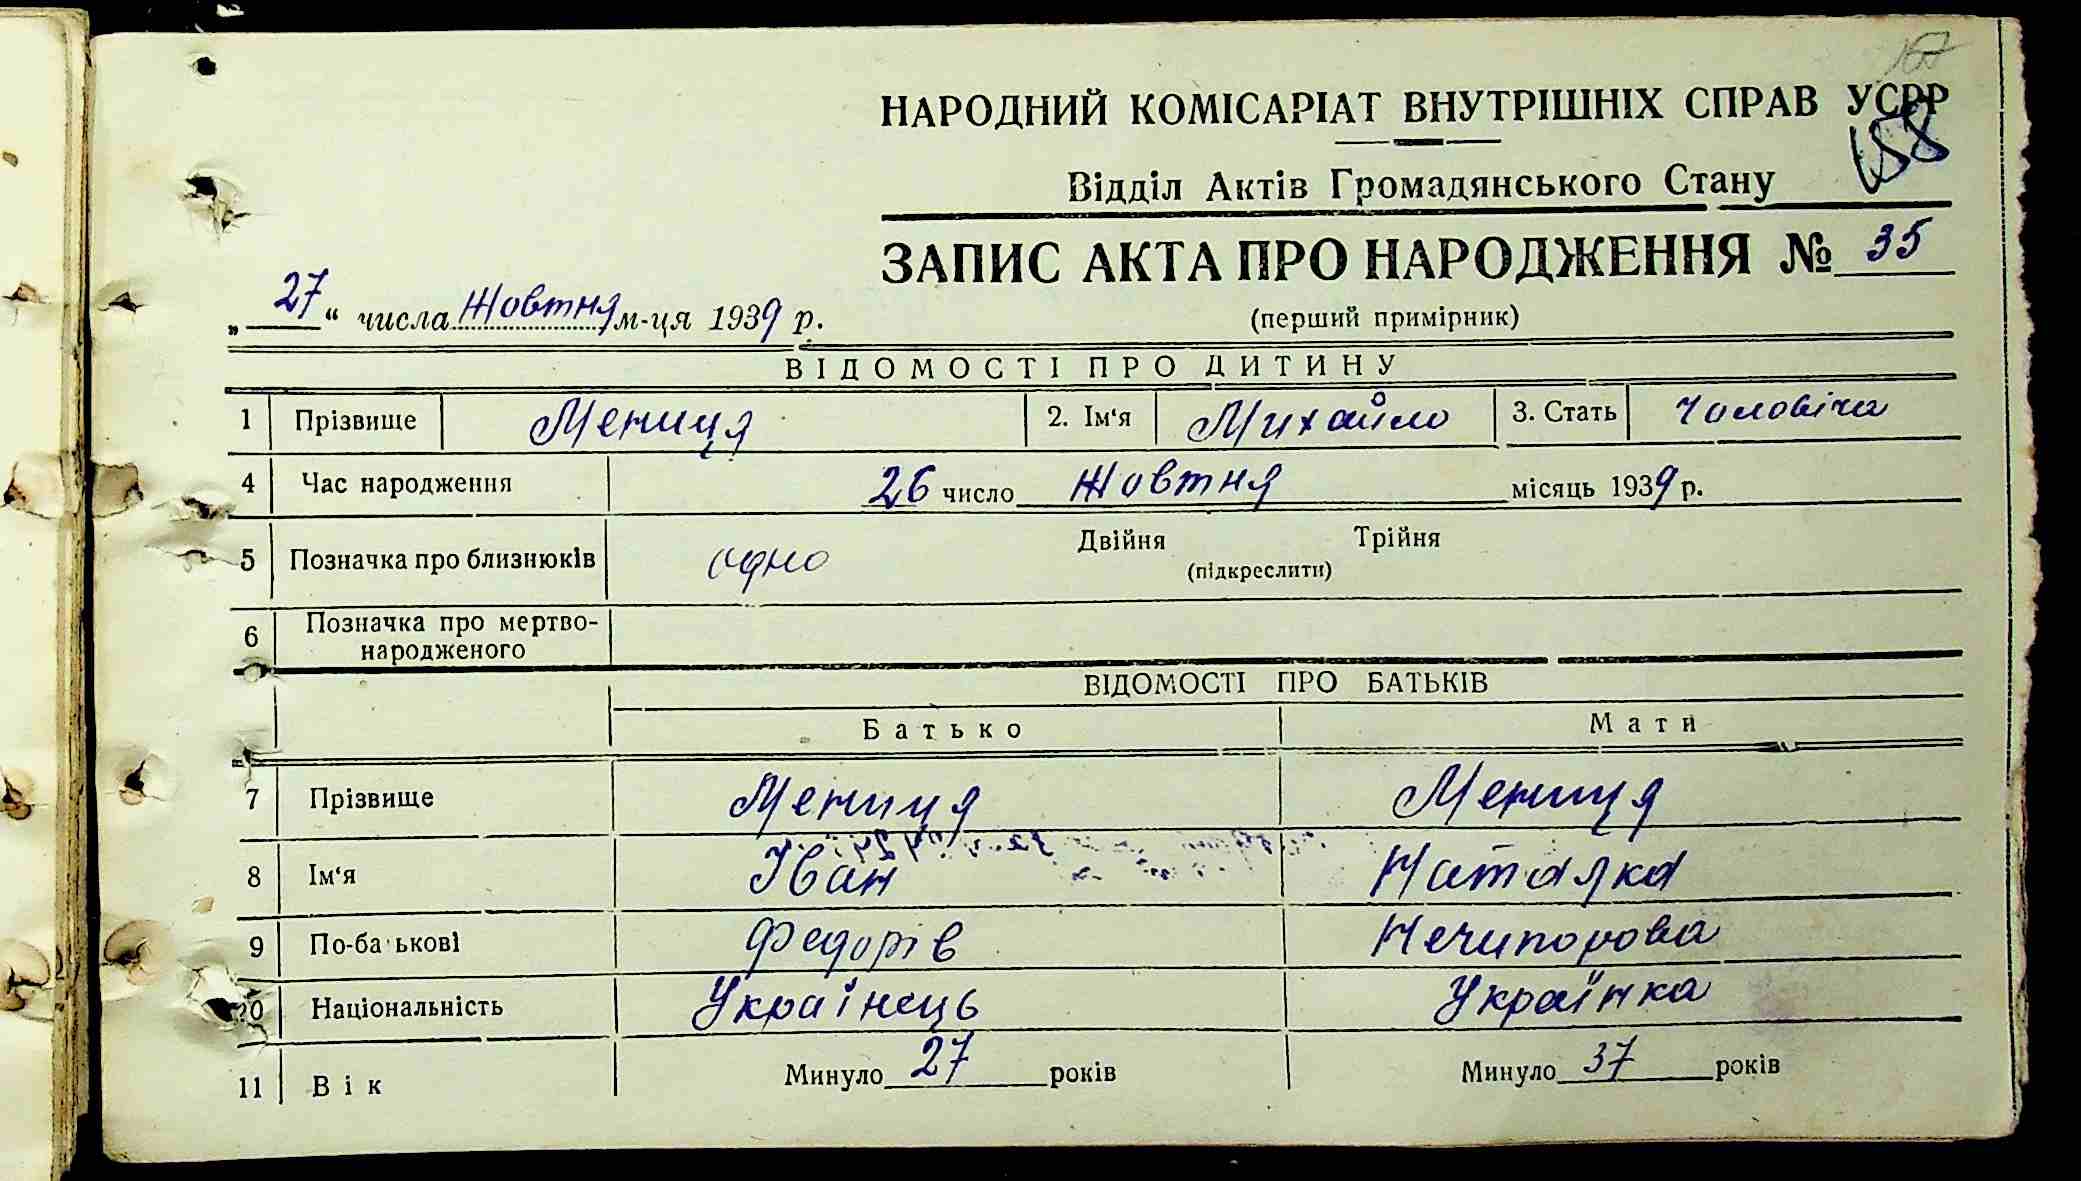 157
НАРОДНИЙ КОМІСАРІАТ ВНУТРІШНІХ СПРАВ УСРР
158
Відділ Актів Громадянського Стану
ЗАПИС АКТА ПРО НАРОДЖЕННЯ № 35
„27“ числа Жовтня м-ця 1939 р.
(перший примірник)
ВІДОМОСТІ ПРО ДИТИНУ
1 Прізвище Мениця 2. Ім‘я Михайло 3. Стать Чоловіча
4 Час народження 26 число Жовтня місяць 1939 р.
5 Позначка про близнюків одно Двійня Трійня
(підкреслити)
6 Позначка про мертво-
народженого
ВІДОМОСТІ ПРО БАТЬКІВ
Батько Мати
7 Прізвище Мениця Мениця
8 Ім‘я Іван Наталка
9 По-батькові Федорів Нечипорова
10 Національність Українець Українка
11 Вік Минуло 27 років Минуло 37 років